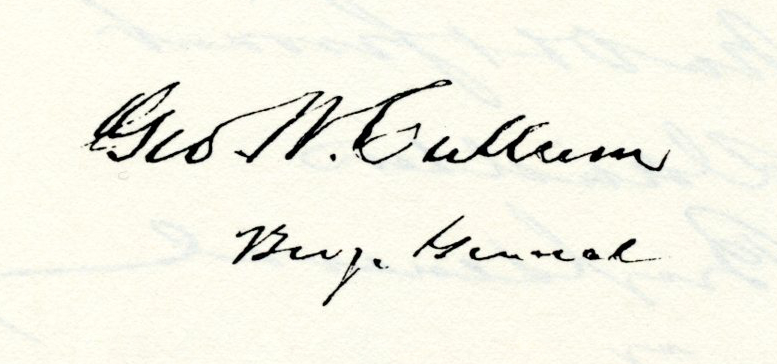 Geo W. Cullum
Brig. General